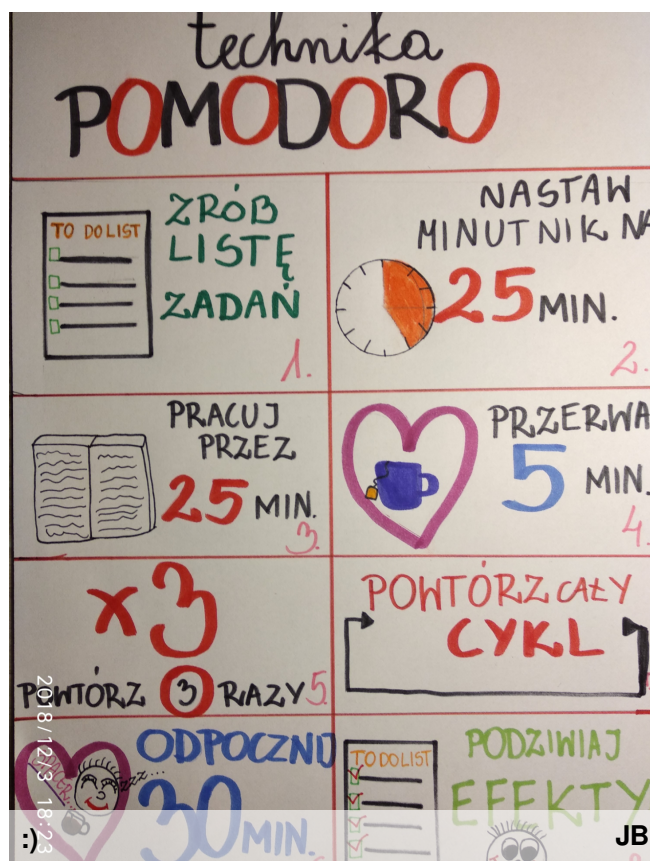 technika
POMODORO
TO DO LIST
ZRÓB
LISTĘ
ZADAŃ
1.
NASTAW
MINUTNIK NA
25 MIN.
2.
PRACUJ
PRZEZ
25 MIN.
3.
PRZERWA
5 MIN.
4.
x3
POWTÓRZ 3 RAZY
5.
POWTÓRZ CAŁY
CYKL
ODPOCZNIJ
30 MIN.
zzz...
TO DO LIST
PODZIWIAJ
EFEKTY
2018/12/3 18:23
:)
JB